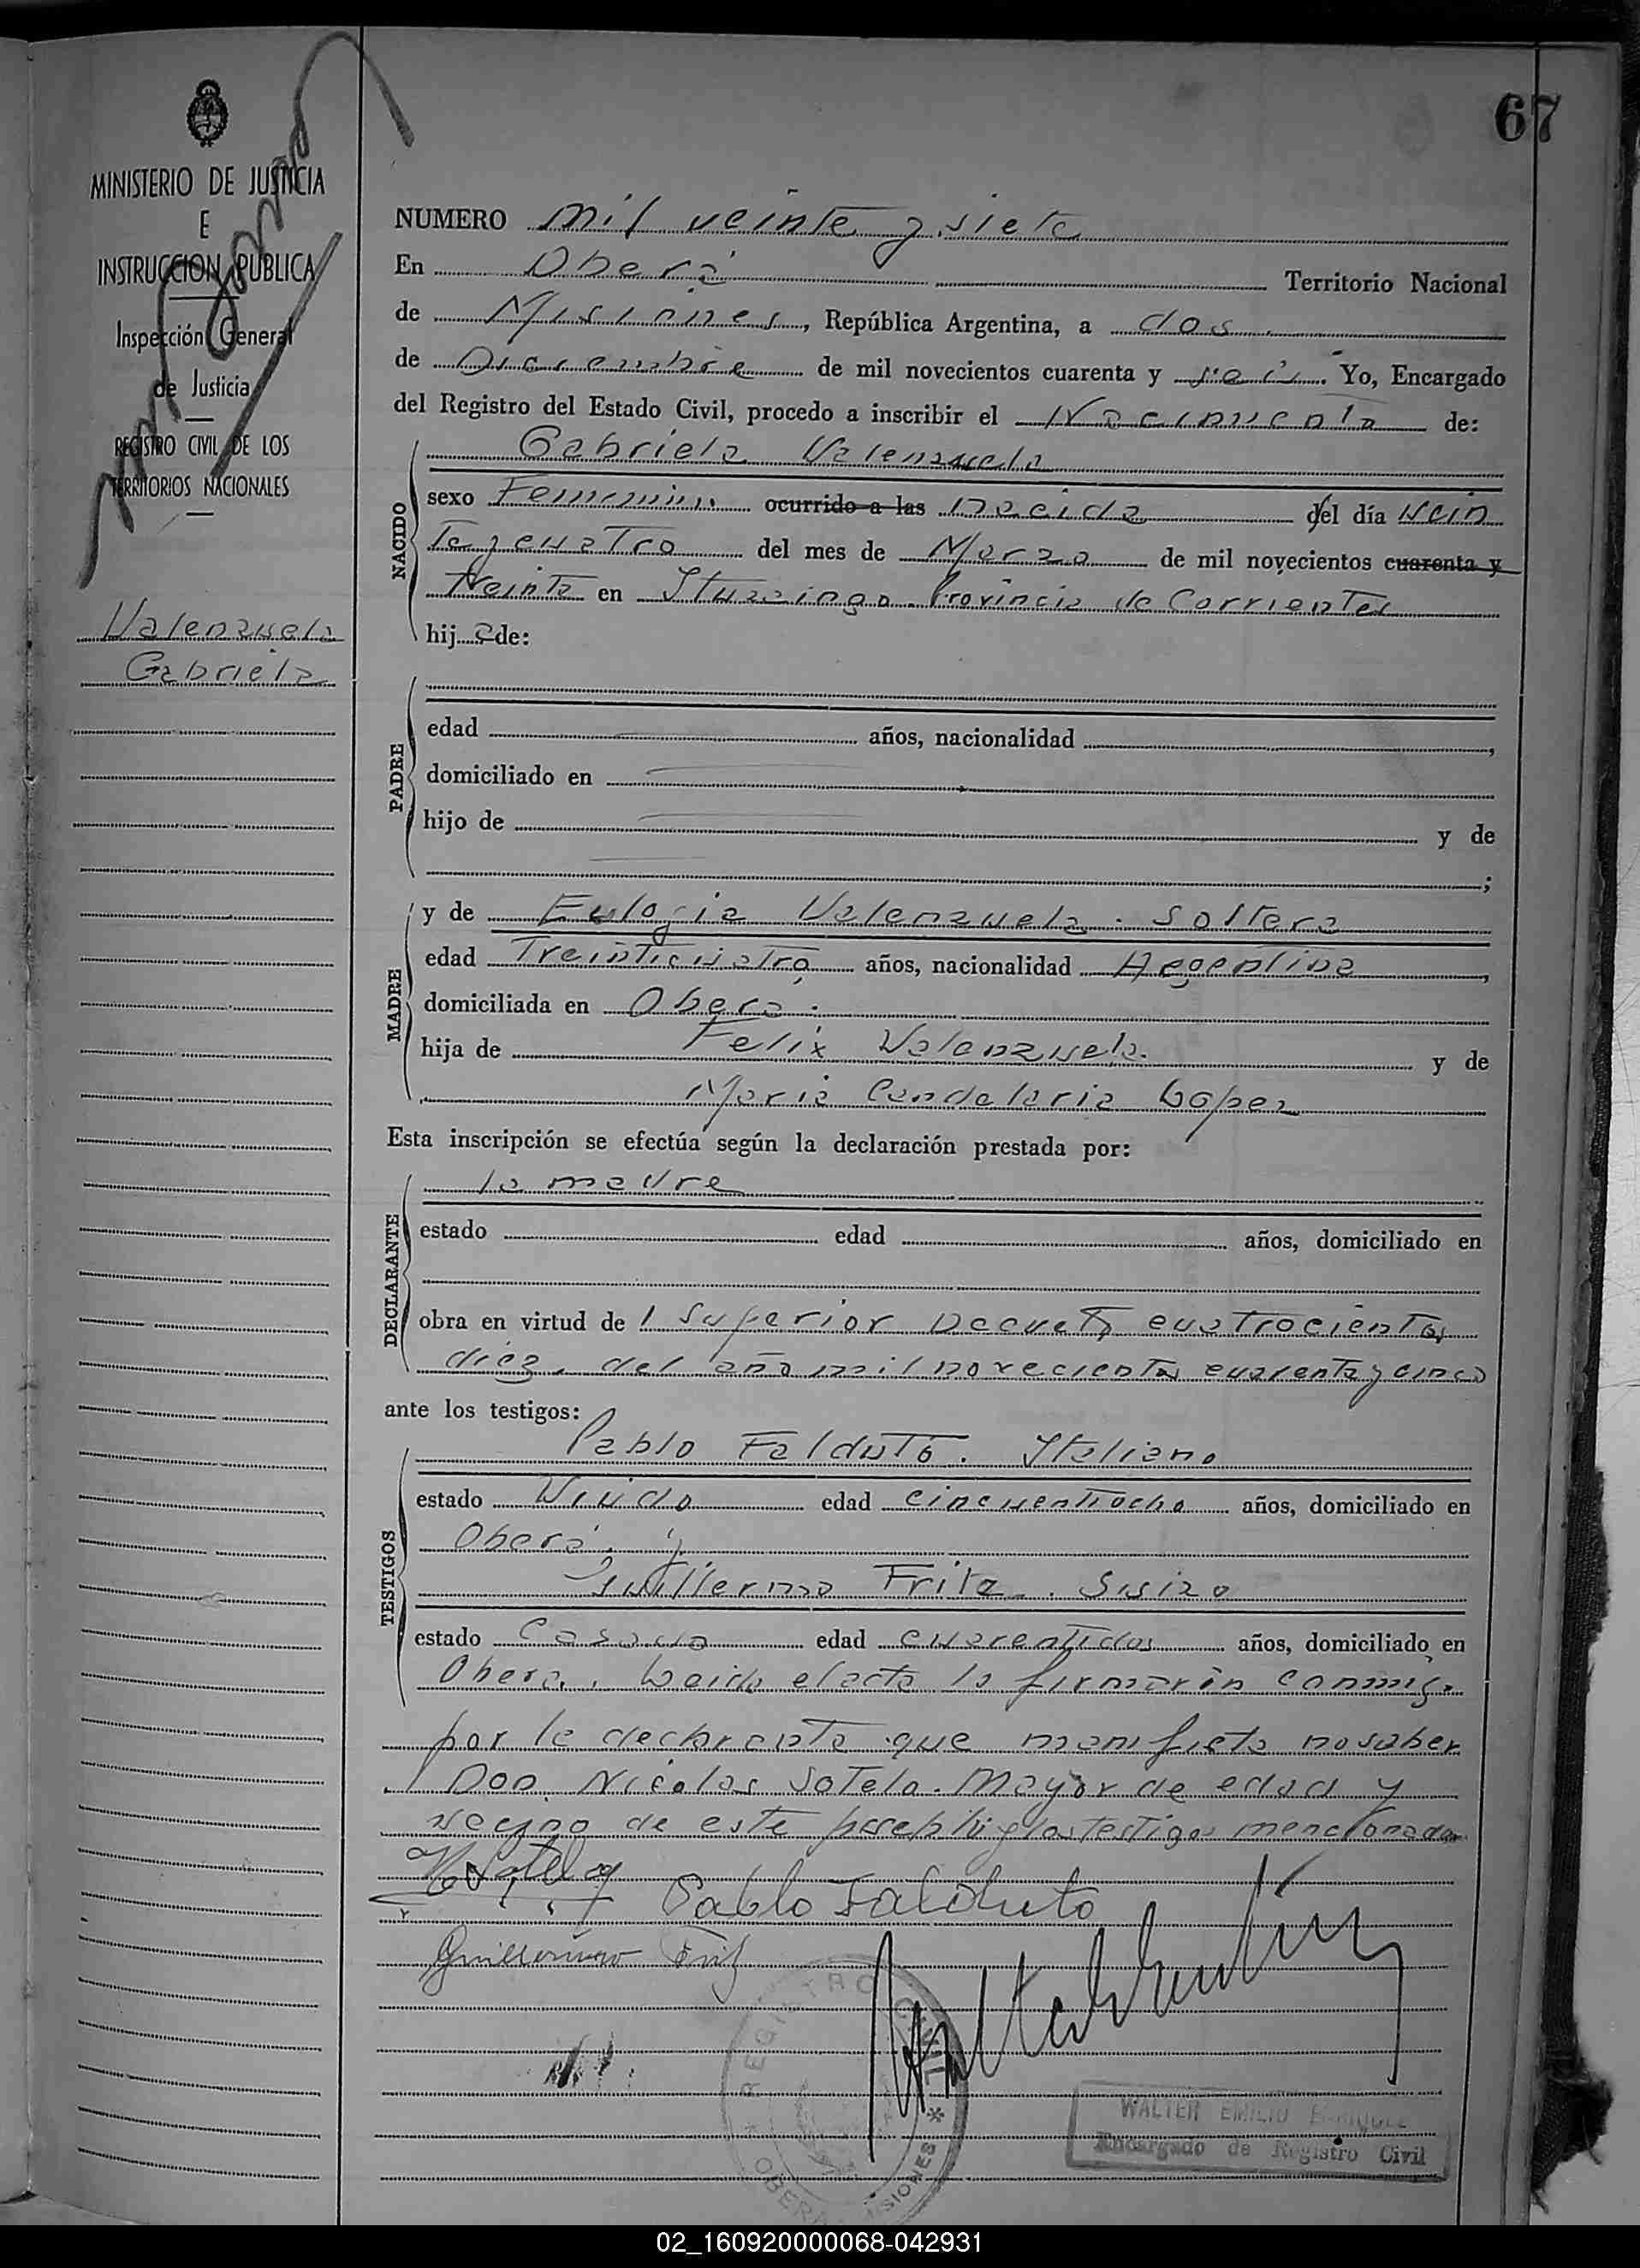 67
MINISTERIO DE JUSTICIA
E
INSTRUCCION PUBLICA
Inspección General
de Justicia
REGISTRO CIVIL DE LOS
TERRITORIOS NACIONALES
Valenzuela
Gabriela
NUMERO mil veinte y siete
En Oberá Territorio Nacional
de Misiones, República Argentina, a dos
de Diciembre de mil novecientos cuarenta y seis. Yo, Encargado
del Registro del Estado Civil, procedo a inscribir el Nacimiento de:
NACIDO
Gabriela Valenzuela
sexo Femenino ocurrido a las nacida del día vein
te y cuatro del mes de Marzo de mil novecientos cuarenta y
treinta en Ituzaingo Provincia de Corrientes
hija de:
PADRE
edad años, nacionalidad ,
domiciliado en
hijo de y de
;
MADRE
y de Eulogia Valenzuela. soltera
edad Treinticuatro años, nacionalidad Argentina ,
domiciliada en Obera.
hija de Felix Valenzuela. y de
Maria Candelaria Lopez
Esta inscripción se efectúa según la declaración prestada por:
DECLARANTE
la madre
estado edad años, domiciliado en
obra en virtud de l Superior Decreto cuatrocientos
diez, del año mil novecientos cuarenta y cinco
ante los testigos:
TESTIGOS
Pablo Falduto. Italiano
estado Viudo edad cincuentiocho años, domiciliado en
Oberá. y
Guillermo Fritz. Suizo
estado Casado edad cuarentidos años, domiciliado en
Obera. Leida el acta la firmarón conmigo
por la declarante que manifiesta no saber
Don Nicolas Sotelo. Mayor de edad y
vecino de este y los testigos mencionados
N Sotelo
Pablo Falduto
Guillermo Fritz
REGISTRO CIVIL * OBERA MISIONES *
WALTER EMILIO
Encargado de Registro Civil
02_160920000068-042931